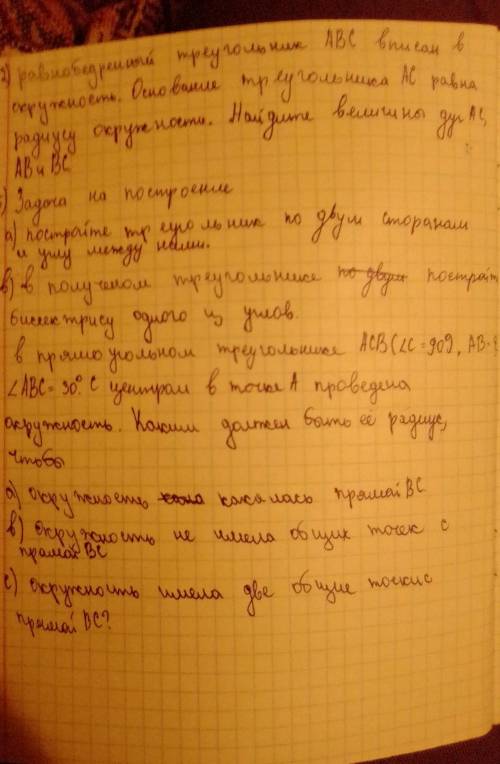 2) равнобедренный треугольник ABC вписан в
окружность. Основание треугольника AC равна
радиусу окружности. Найдите величины дуг AC,
AB и BC
) Задача на построение
а) постройте треугольник по двум сторонам
и углу между ними.
в) в получ треугольнике по двум построй
биссектрису одного из углов.
в прямоугольном треугольнике ACB (∠C = 90°), AB =
∠ABC = 30°. С центром в точке A проведена
окружность. Каким должен быть её радиус,
чтобы
а) окружность касалась прямой BC
в) окружность не имела общих точек с
прямой BC
с) окружность имела две общие точки с
прямой BC?